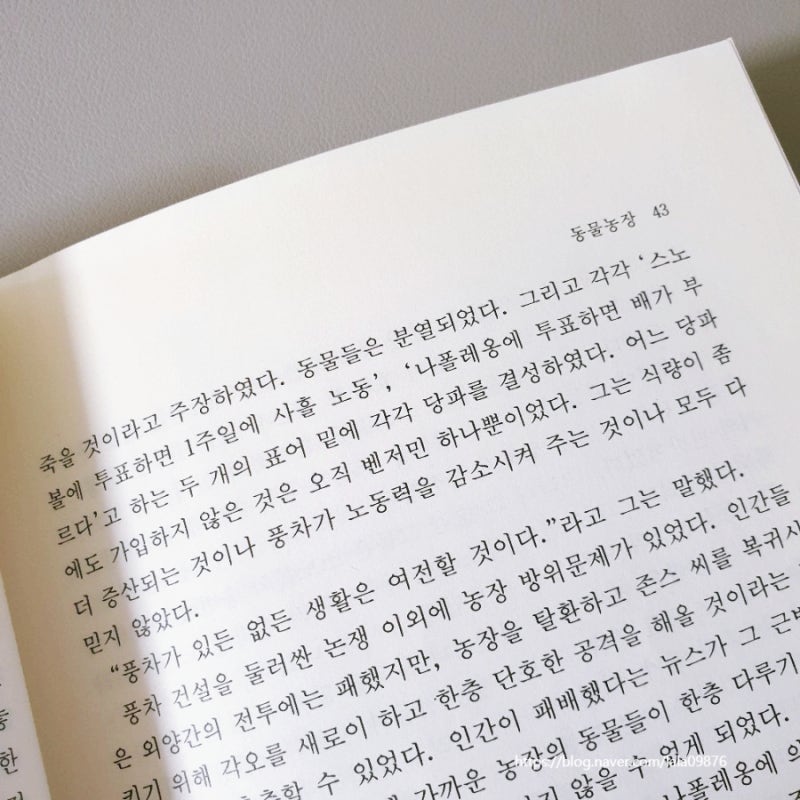 동물농장 43
죽을 것이라고 주장하였다. 동물들은 분열되었다. 그리고 각각 ‘스노
볼에 투표하면 1주일에 사흘 노동’, ‘나폴레옹에 투표하면 배가 부
르다’고 하는 두 개의 표어 밑에 각각 당파를 결성하였다. 어느 당파
에도 가입하지 않은 것은 오직 벤저민 하나뿐이었다. 그는 식량이 좀
더 증산되는 것이나 풍차가 노동력을 감소시켜 주는 것이나 모두 다
믿지 않았다.
“풍차가 있든 없든 생활은 여전할 것이다.”라고 그는 말했다.
풍차 건설을 둘러싼 논쟁 이외에 농장 방위문제가 있었다. 인간들
은 외양간의 전투에는 패했지만, 농장을 탈환하고 존스 씨를 복귀시
키기 위해 각오를 새로이 하고 한층 단호한 공격을 해올 것이라는
수 있었다. 인간이 패배했다는 뉴스가 그
가까운 농장의 동물들이 한층 다루기
않을 수 없게 되었다.
https://blog.naver.com/lala09876